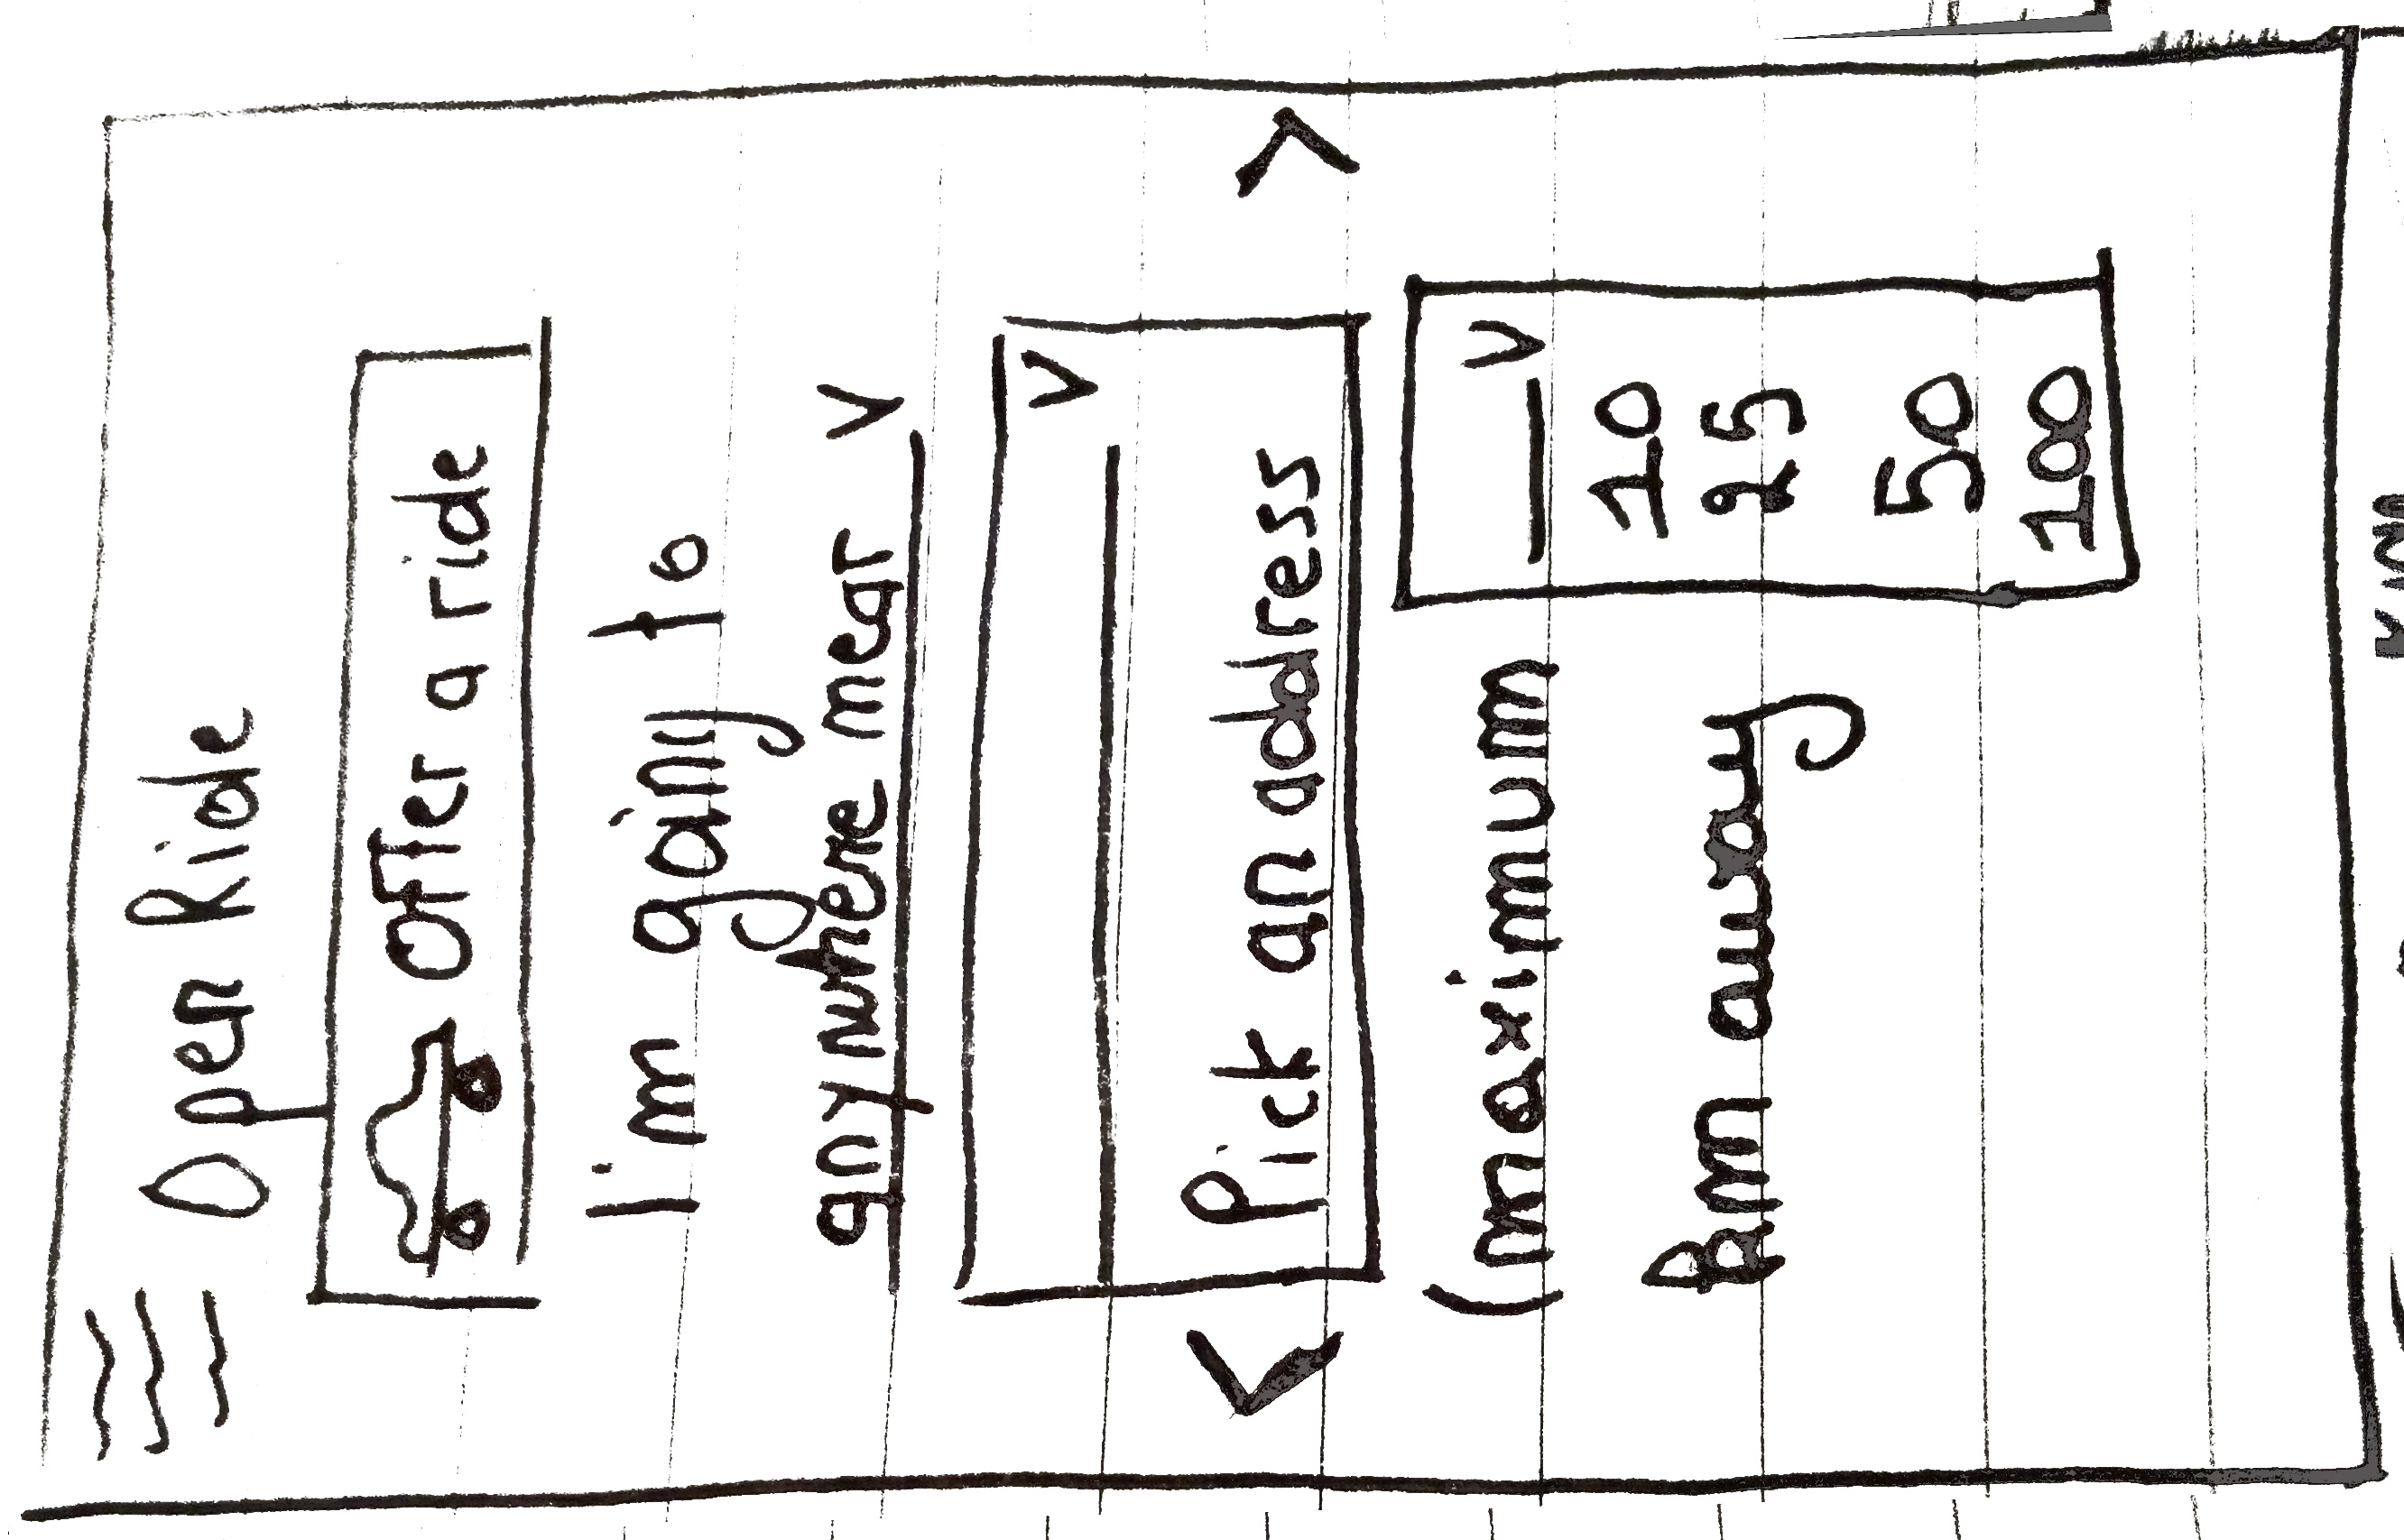 Open Ride
Offer a ride
I'm going to
anywhere near V
V
Pick an address
< >
(maximum
km away
V
10
25
50
100